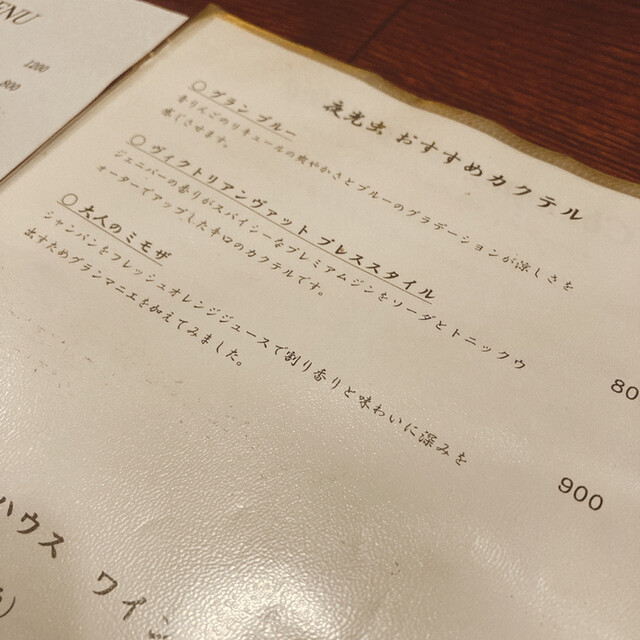 MENU
1000
800
夜光虫 おすすめカクテル
○ グラン ブルー
青りんごのリキュールの爽やかさとブルーのグラデーションが涼しさを
感じさせます。
○ ヴィクトリアンヴァット プレススタイル
ジュニパーの香りがスパイシーなプレミアムジンをソーダとトニックウ
ォーターでアップした辛口のカクテルです。
80
○ 大人のミモザ
シャンパンをフレッシュオレンジジュースで割り香りと味わいに深みを
出すためグランマニエを加えてみました。
900
ハウス ワイン